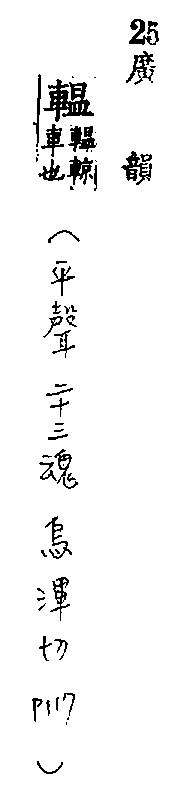 25廣韻
轀轀輬車也(平聲二十三魂烏渾切P117)